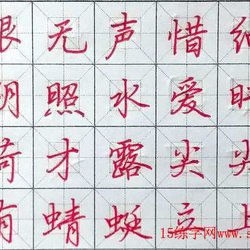 眼无声惜细
阴照水爱晴
荷才露尖尖
有蜻蜓立
15练字网www.